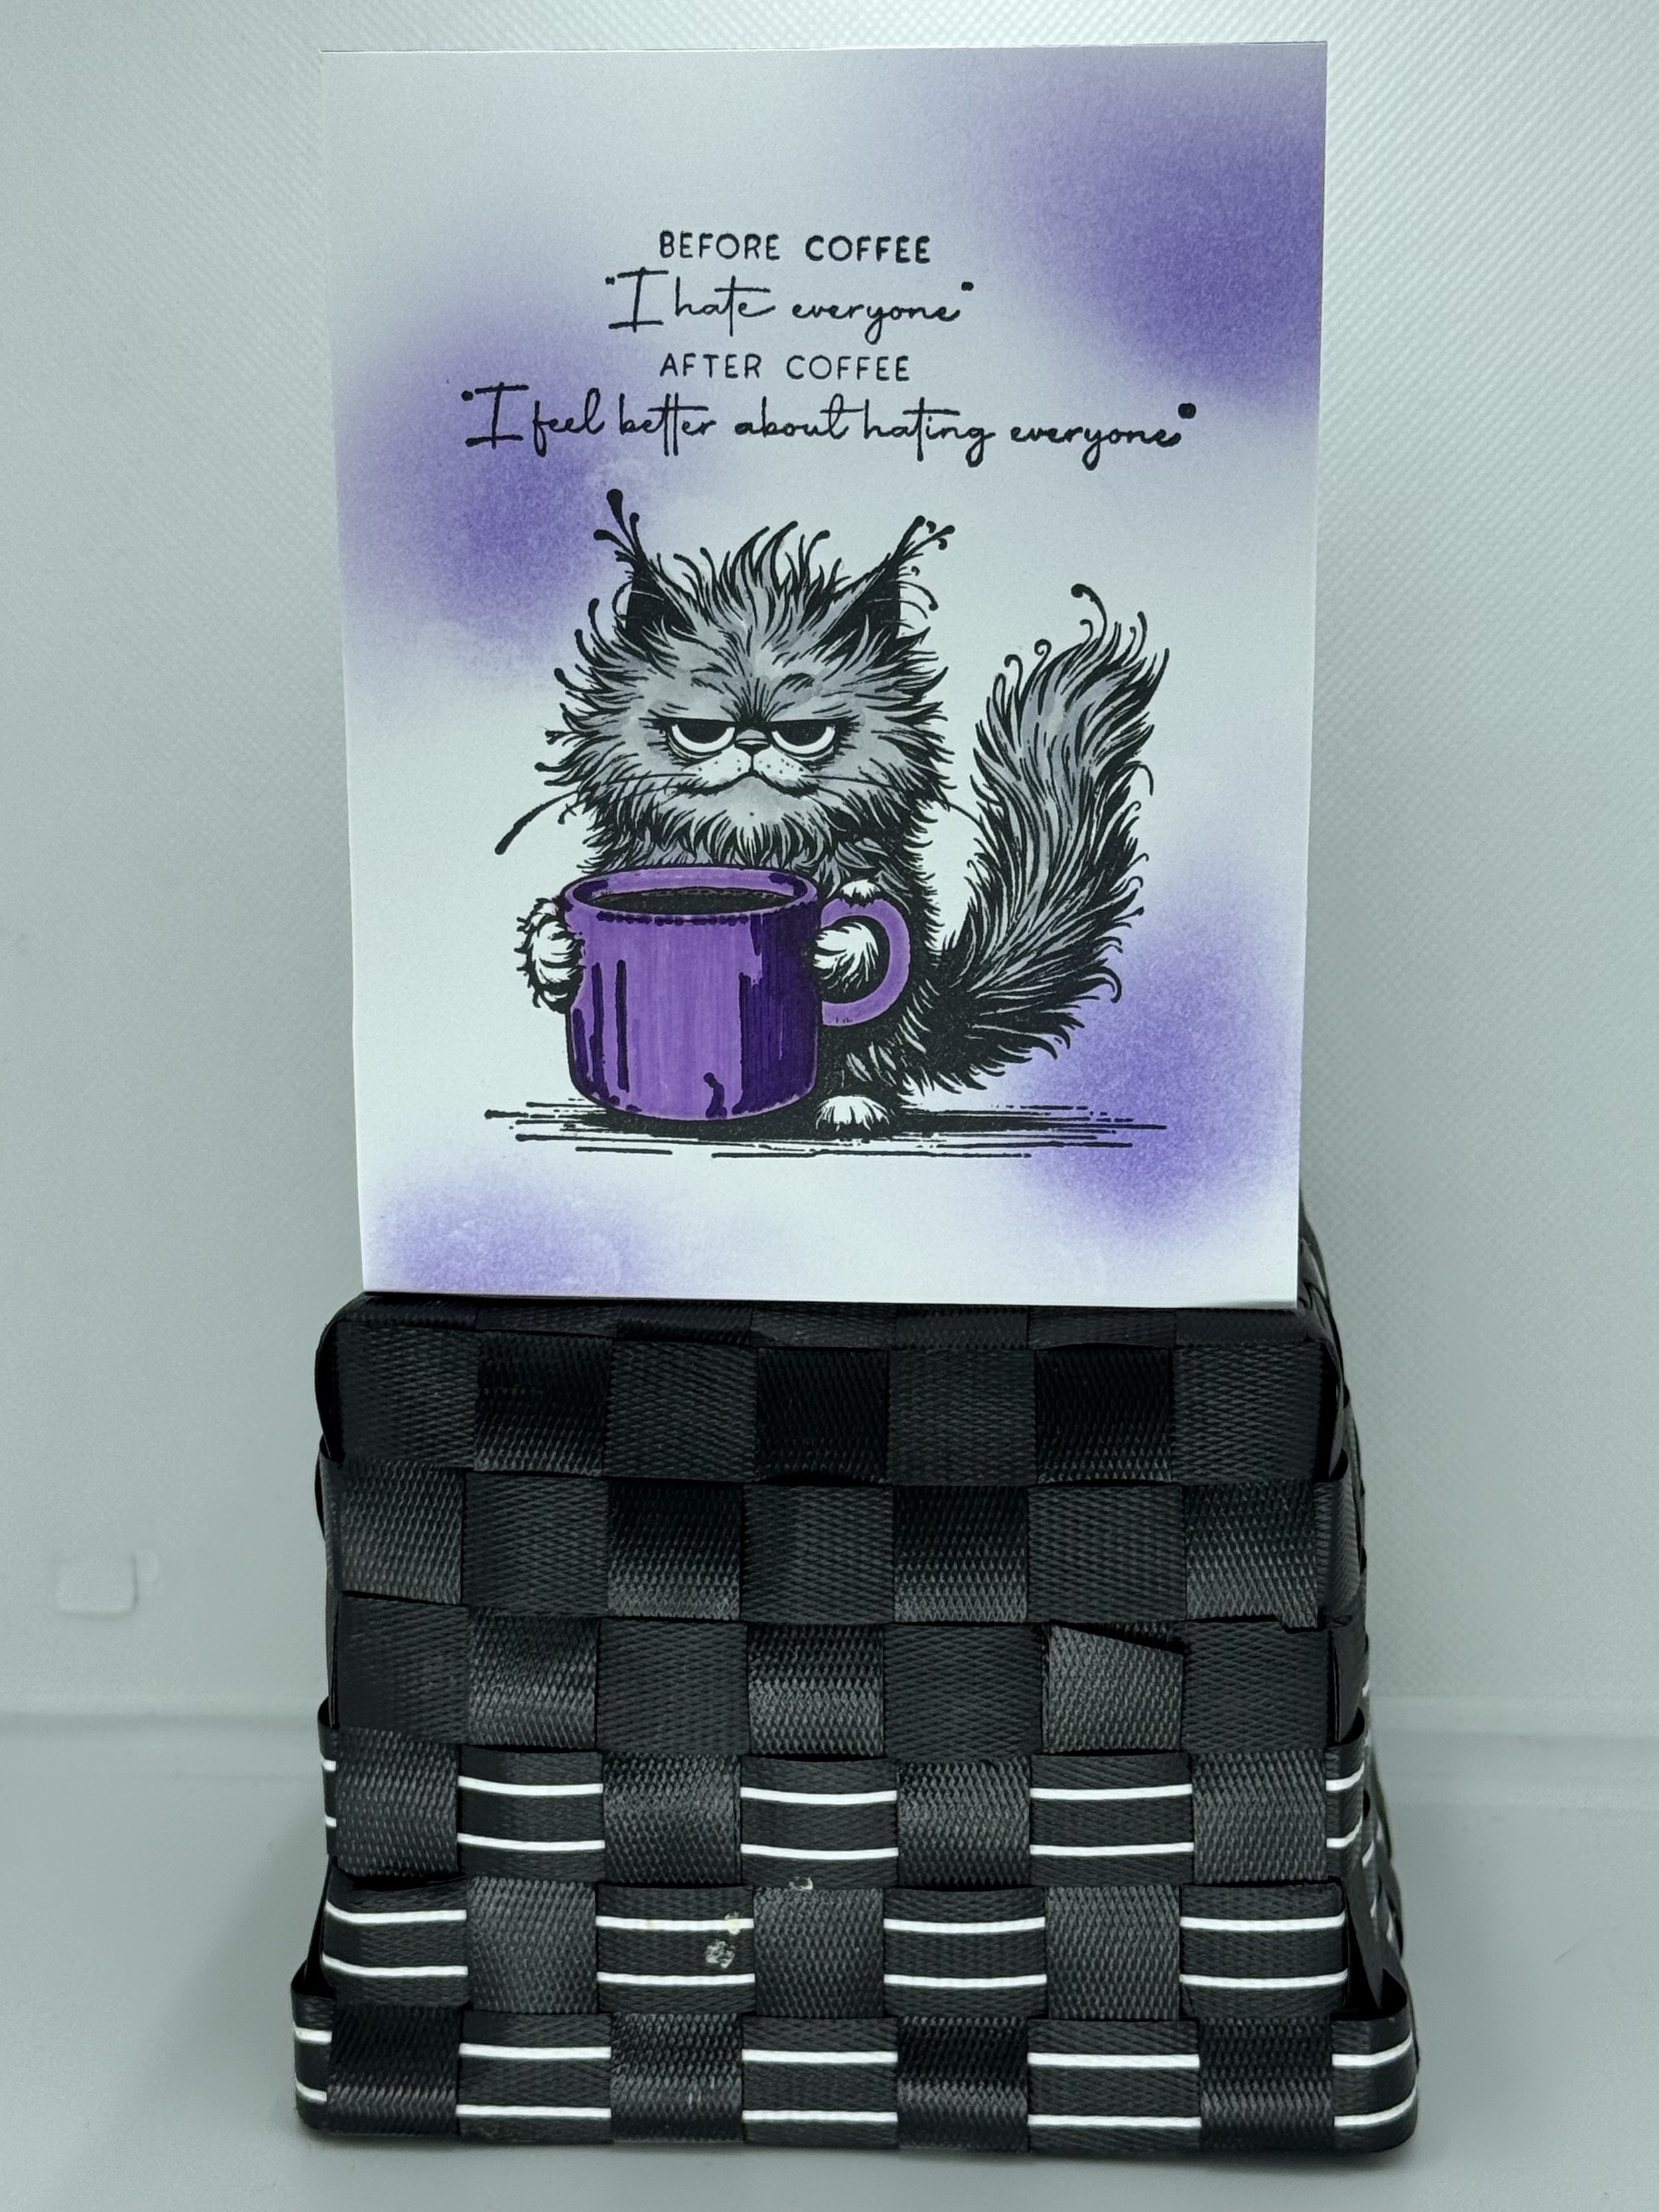 BEFORE COFFEE
"I hate everyone"
AFTER COFFEE
"I feel better about hating everyone"